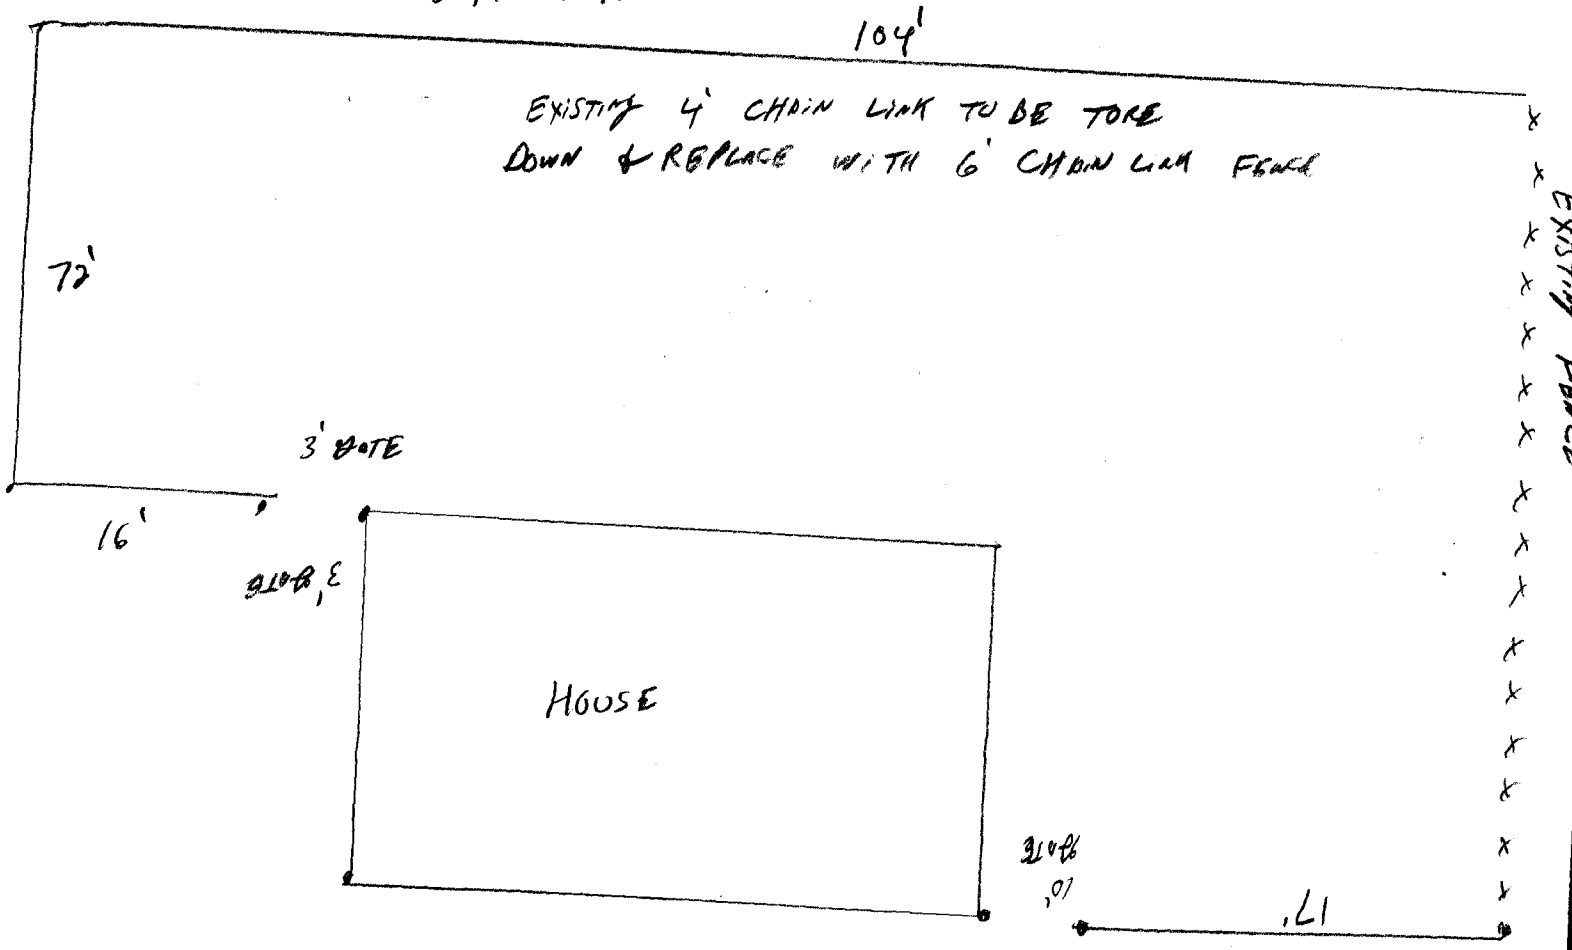 104'
EXISTING 4' CHAIN LINK TO BE TORE
DOWN & REPLACE WITH 6' CHAIN LINK FENCE
EXISTING FENCE
72'
3' GATE
16'
3' GATE
HOUSE
10'
GATE
17'